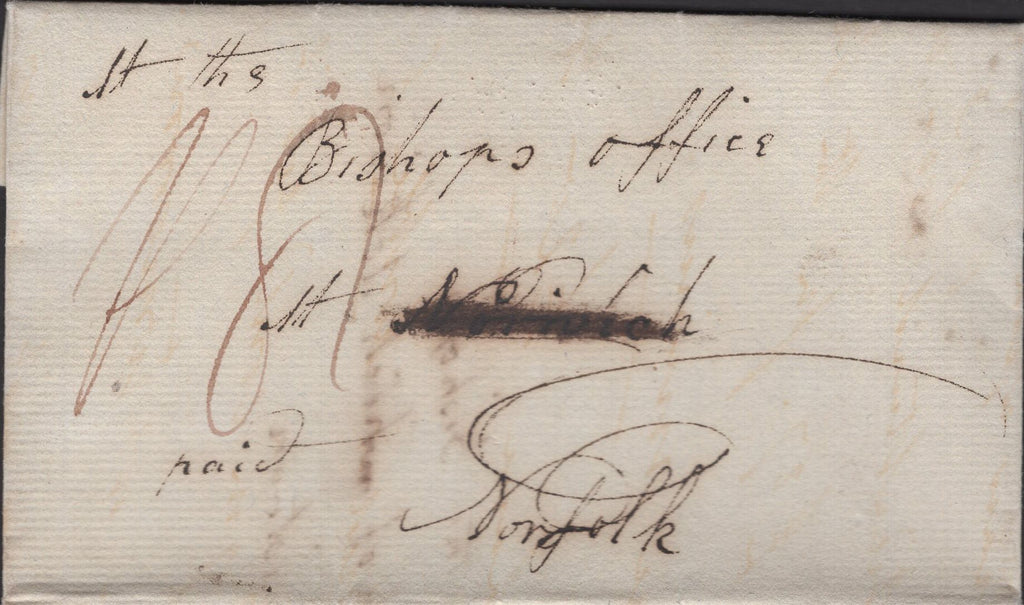 At the
Bishops office
At Norwich
paid
Norfolk